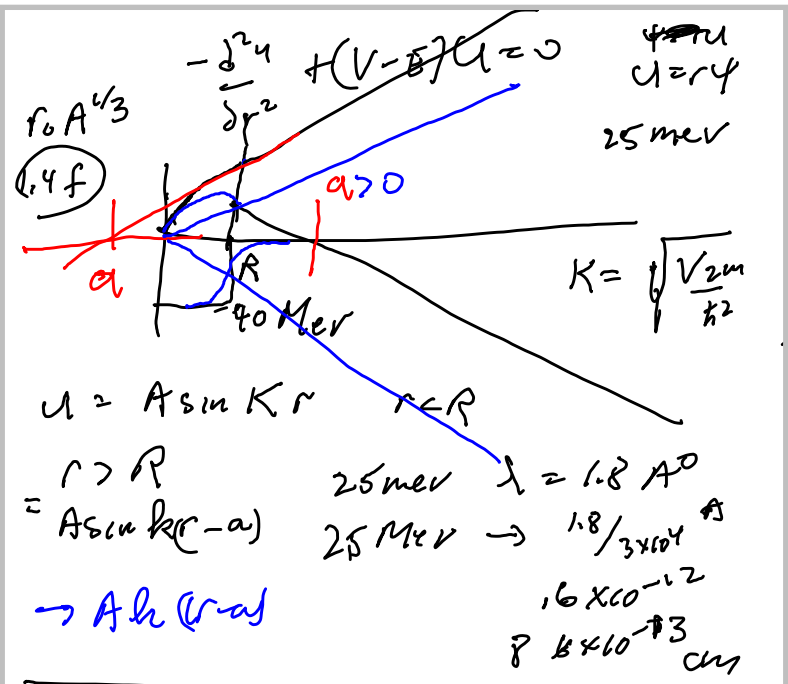 -∂²u/∂r² + (V-E)u = 0
u = rψ
r₀ A^1/3
1.4 f
25 mev
a>0
a
R
-40 Mev
K = √(V2m/ħ²)
u = A sin K r r < R
r > R
= A sin k(r-a)
25 mev λ = 1.8 A⁰
25 Mev → 1.8/3x10⁴ A
→ A k (r-a)
.6 x10⁻¹²
6x10⁻¹³
cm